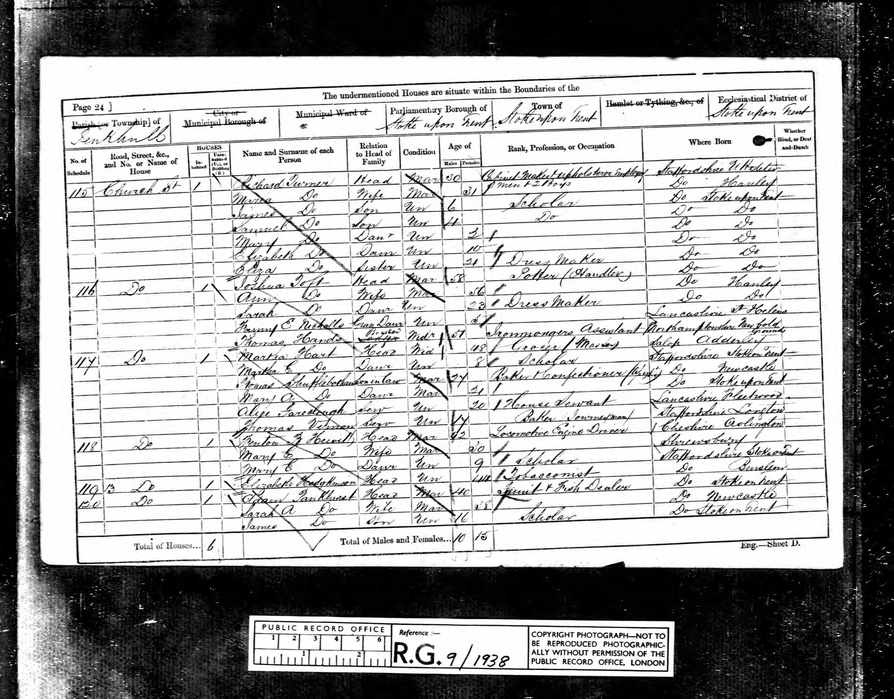 The undermentioned Houses are situate within the Boundaries of the
Page 24 ]
Parish [or Township] of
City or Municipal Borough of
Municipal Ward of
Parliamentary Borough of
Stoke upon Trent
Town of
Stoke upon Trent
Hamlet or Tything, &c., of
Ecclesiastical District of
Stoke upon Trent
No. of Schedule
Road, Street, &c., and No. or Name of House
HOUSES
Inhabited
Name and Surname of each Person
Relation to Head of Family
Condition
Age of
Males
Females
Rank, Profession, or Occupation
Where Born
Whether Blind, or Deaf-and-Dumb
115 Church St 1 Richard Turner Head Mar 30 Cabinet Maker & upholsterer Staffordshire Uttoxeter
Do Wife Mar 31 men & 2 Boys Do Hanley
James Do Son Un 6 Scholar Do Stoke upon Trent
Samuel Do Son Un 4 Do Do Do
Mary Do Daur Un 2 Do Do
Elizabeth Do Daur Un Do Do
Eliza Do Sister Un 21 Dress Maker Do Do
116 Do 1 Joshua Toft Head Mar 58 Potter (Handler) Do Hanley
Ann Do Wife Mar 56 Do Do
Sarah Do Daur Un 23 Dress Maker Do Do
Fanny E Nicholls Gran Daur Un Lancashire St Helens
Thomas Hands Widr Ironmongers Assistant Northamptonshire
117 Do 1 Martha Hart Head Wid 48 Grocer Salop Adderley
Martha E Do Daur Un 8 Scholar Staffordshire Stoke on Trent
Thomas Son in law Mar 27 Baker & Confectioner Do Newcastle
Mary A Do Daur Mar 21 Do Stoke upon Trent
Alice Serv Un 20 House Servant Lancashire Fleetwood
Thomas Vernon Serv Un 17 Baker Journeyman Staffordshire Longton
118 Do 1 Fenton Hewitt Head Mar 42 Locomotive Engine Driver Cheshire
Mary E Do Wife Mar 30 Shrewsbury
Mary E Do Daur Un 9 Scholar Staffordshire Stoke on Trent
119 Do 1 Elizabeth Hodgkinson Head Un 44 Tobacconist Do Burslem
120 Do 1 Adam Pankhurst Head Mar 40 Fruit & Fish Dealer Do Stoke on Trent
Sarah A Do Wife Mar 38 Do Newcastle
James Do Son Un 16 Scholar Do Stoke on Trent
Total of Houses... 6
Total of Males and Females... 10 15
Eng.—Sheet D.
PUBLIC RECORD OFFICE
1 2 3 4 5 6
1 2
Reference :—
R.G. 9/1938
COPYRIGHT PHOTOGRAPH—NOT TO
BE REPRODUCED PHOTOGRAPHIC-
ALLY WITHOUT PERMISSION OF THE
PUBLIC RECORD OFFICE, LONDON